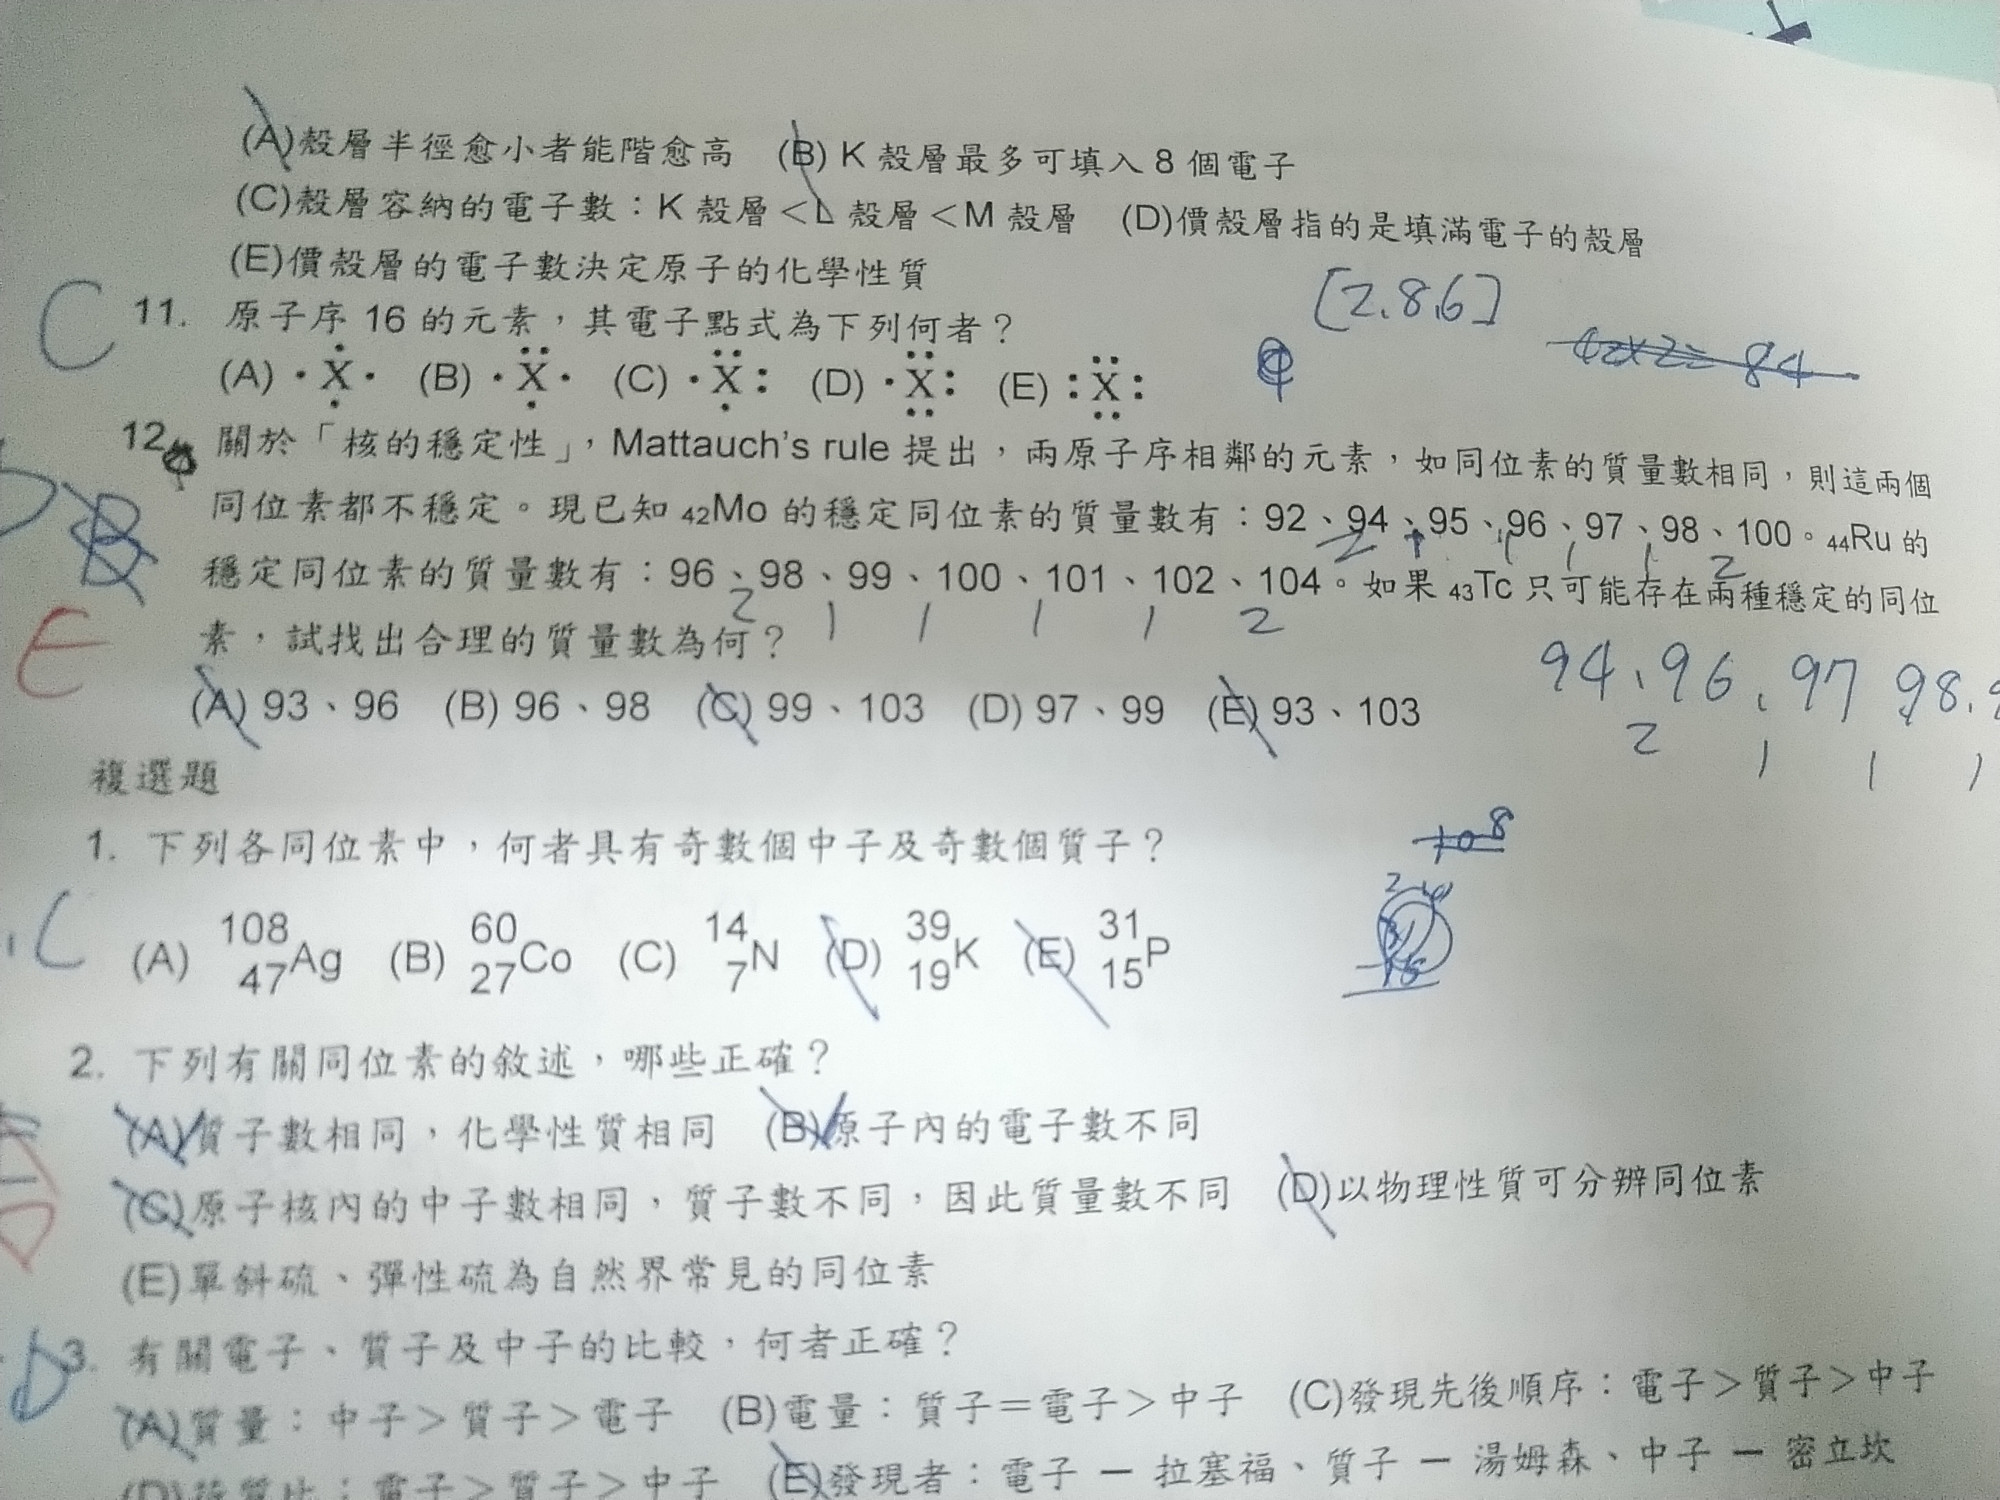 (A)殼層半徑愈小者能階愈高 (B) K 殼層最多可填入 8 個電子
(C)殼層容納的電子數：K 殼層＜L 殼層＜M 殼層 (D)價殼層指的是填滿電子的殼層
(E)價殼層的電子數決定原子的化學性質
[2.8.6]
C 11. 原子序 16 的元素，其電子點式為下列何者？
42x2=84
(A) ·X· (B) ·X· (C) ·X: (D) ·X: (E) :X:
12. 關於「核的穩定性」，Mattauch's rule 提出，兩原子序相鄰的元素，如同位素的質量數相同，則這兩個
同位素都不穩定。現已知 42Mo 的穩定同位素的質量數有：92、94、95、96、97、98、100。44Ru 的
2 1 1 1 1 2
穩定同位素的質量數有：96、98、99、100、101、102、104。如果 43Tc 只可能存在兩種穩定的同位
2 1 1 1 1 2
E 素，試找出合理的質量數為何？
94、96、97 98.
2 1 1 1
(A) 93、96 (B) 96、98 (C) 99、103 (D) 97、99 (E) 93、103
複選題
108
1. 下列各同位素中，何者具有奇數個中子及奇數個質子？
C (A) 108 47 Ag (B) 60 27 Co (C) 14 7 N (D) 39 19 K (E) 31 15 P
2. 下列有關同位素的敘述，哪些正確？
(A)質子數相同，化學性質相同 (B)原子內的電子數不同
(C)原子核內的中子數相同，質子數不同，因此質量數不同 (D)以物理性質可分辨同位素
(E)單斜硫、彈性硫為自然界常見的同位素
D 3. 有關電子、質子及中子的比較，何者正確？
(A)質量：中子＞質子＞電子 (B)電量：質子＝電子＞中子 (C)發現先後順序：電子＞質子＞中子
(D)荷質比：電子＞質子＞中子 (E)發現者：電子 － 拉塞福、質子 － 湯姆森、中子 － 密立坎